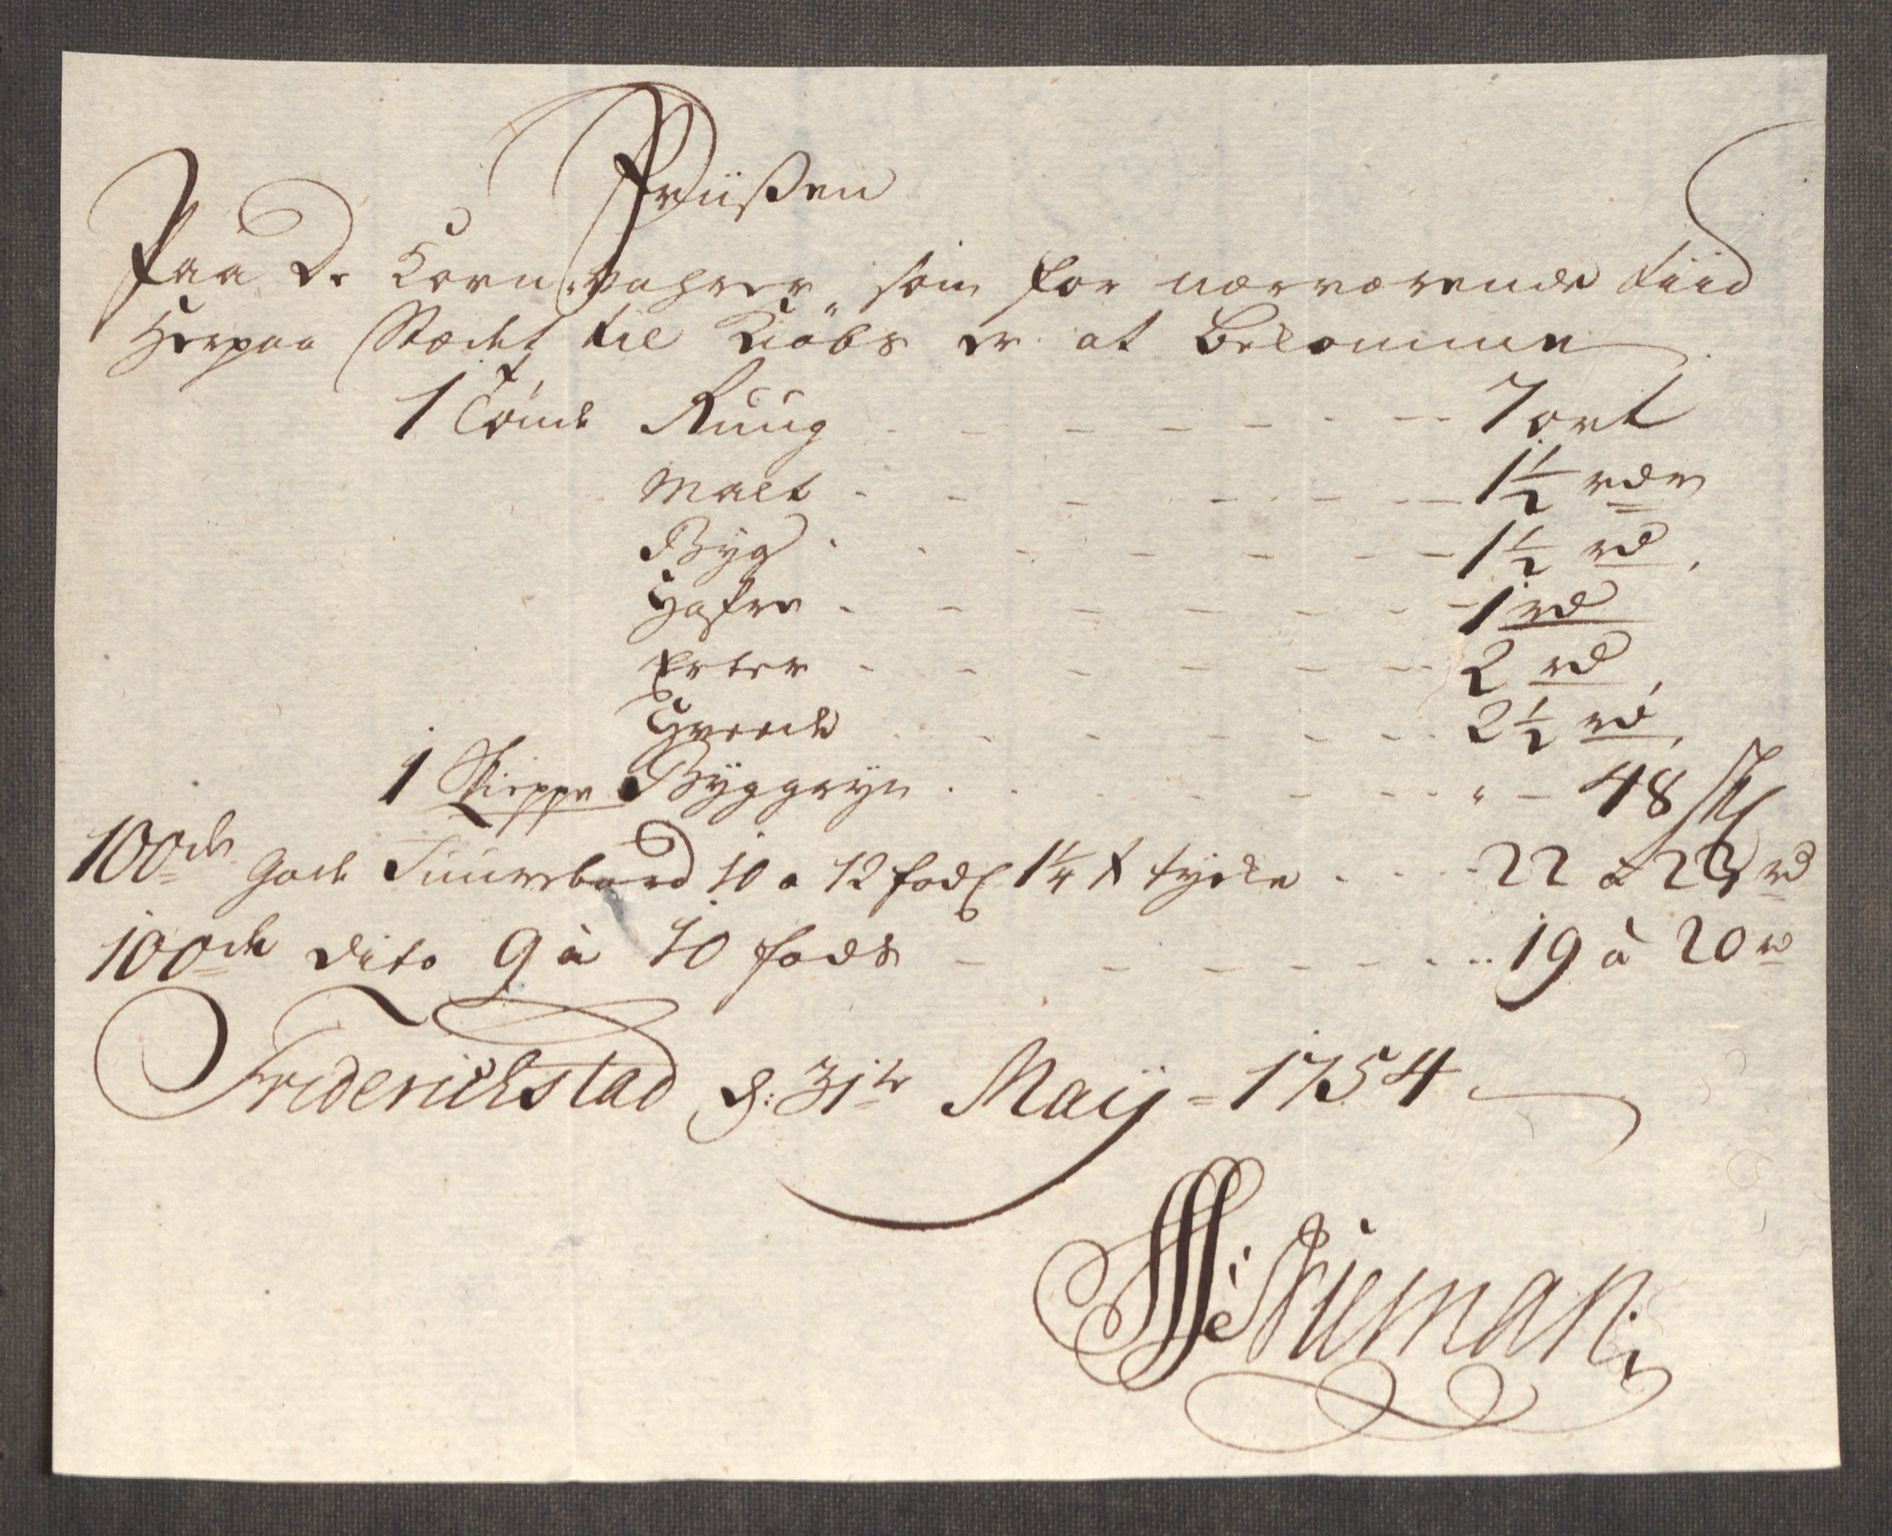 Priißen
Paa De Korn vahrer, som for nærværende tiid
Herpaa Stædet til Kiöbs er at bekomme
1 Tønde Ruug - - - 7 ort
Malt - - - 1½ rdr
Byg - - - 1½ rd
Hafre - - - 1 rd
Erter - - - 2 rd
Hvede - - - 2½ rd
1 Skieppe Byggryn - - - 48 sk
100de gode Furrebord 10 a 12 fods 1¼ t tycke - - - 22 a 23 rd
100de dito 9 à 10 fods - - - 19 à 20 rd
Friderichstad d: 31te Maij = 1754